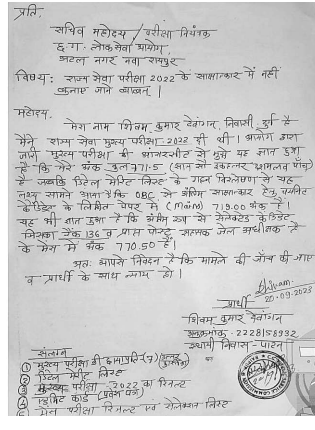 प्रति,
सचिव महोदय / परीक्षा नियंत्रक
छ.ग. लोकसेवा आयोग,
अटल नगर नवा रायपुर
विषय: राज्य सेवा परीक्षा 2022 के साक्षात्कार में नहीं
बुलाए जाने बाबत् ।
महोदय,
मेरा नाम शिवम् कुमार देवांगन, निवासी दुर्ग है
मैंने राज्य सेवा मुख्य परीक्षा-2022 दी थी। आयोग द्वारा
जारी मुख्य परीक्षा की आंसरशीट से मुझे यह ज्ञात हुआ
है कि मेरे अंक कुल 771.5 (सात सौ इकहत्तर दशमलव पांच)
है जबकि डिटेल मेरिट लिस्ट के गहन विश्लेषण से यह
तथ्य सामने आया है कि OBC से अंतिम साक्षात्कार हेतु चयनित
केंडिडेट के लिखित पेपर में (Main) 719.00 अंक है।
यह भी ज्ञात हुआ है कि अंतिम रूप से सेलेक्टेड केंडिडेट
जिसका रैंक 136 व प्राप्त पोस्ट सहायक जेल अधीक्षक है
के मेंस में अंक 770.50 है।
अतः आपसे निवेदन है कि मामले की जाँच की जाए
व प्रार्थी के साथ न्याय हो।
Shivam
20-09-2023
प्रार्थी
शिवम कुमार देवांगन
अनुक्रमांक - 2228158932
स्थायी निवास - पाटन
संलग्न
① मुख्य परीक्षा की छायाप्रति (7)
② डिटेल मेरिट लिस्ट
③ मुख्य परीक्षा - 2022 का रिजल्ट
④ एडमिट कार्ड (प्रवेश पत्र)
⑤ मेंस परीक्षा रिजल्ट एवं सेलेक्शन लिस्ट